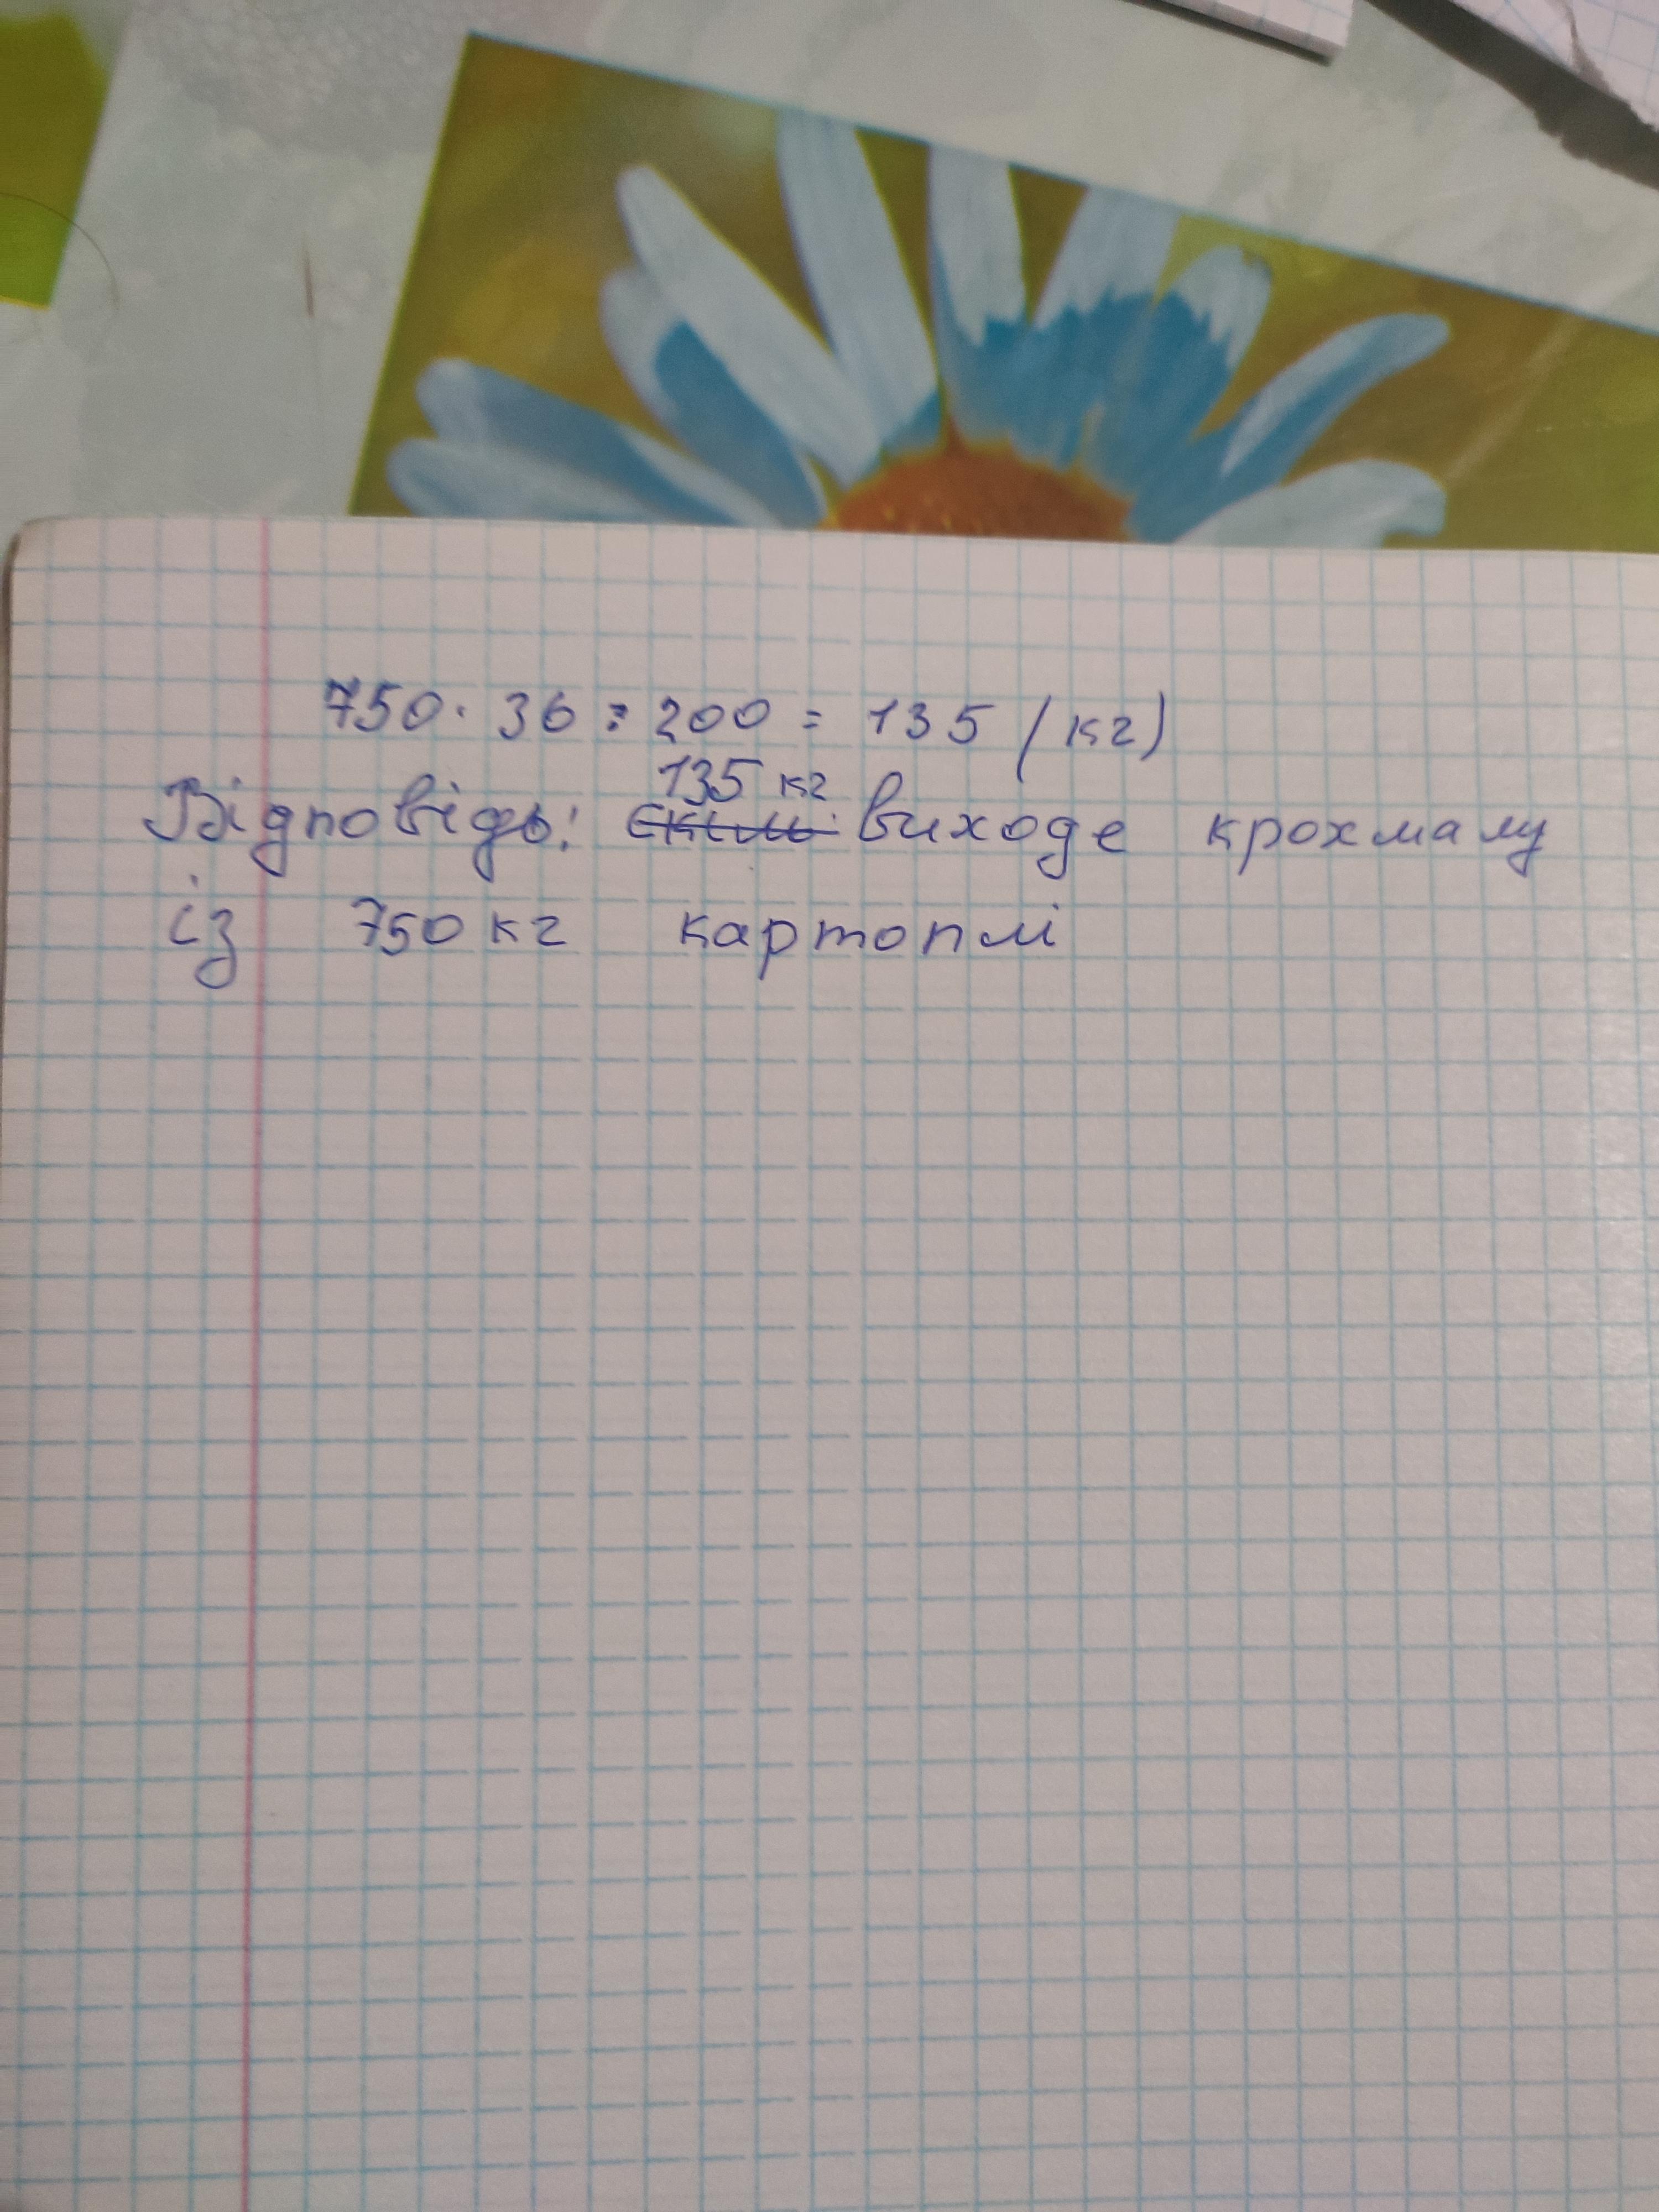 750 · 36 : 200 = 135 (кг)
135 кг
Відповідь: виходе крохмалу
із 750 кг картоплі